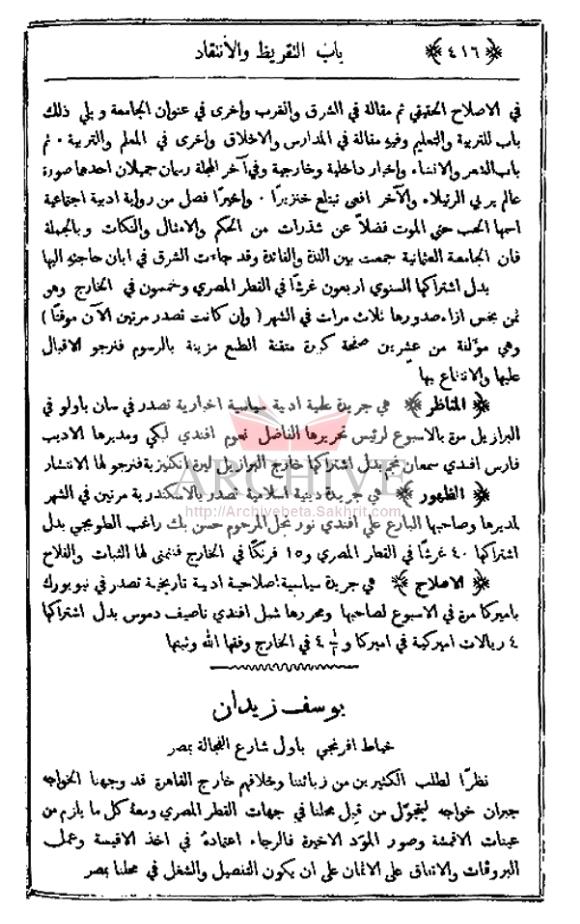 ﴿٤١٦﴾ باب التقريظ والانتقاد
في الاصلاح الحقيقي ثم مقالة في الشرق والغرب واخرى في عنوان الجامعة ويلي ذلك
باب للتربية والتعليم وفيه مقالة في المدارس والاخلاق واخرى في المعلم والتربية . ثم
باب الشعر والانشاء واخبار داخلية وخارجية وفي آخر المجلة رسمان جميلان احدهما صورة
عالم يربي الرتيلاء والآخر افعى تبتلع خنزيرًا . واخيرًا فصل من رواية ادبية اجتماعية
اسمها الحب حتى الموت فضلاً عن شذرات من الحكم والامثال والنكات وبالجملة
فان الجامعة العثمانية جمعت بين اللذة والفائدة وقد جاءت الشرق في ابان حاجته اليها
بدل اشتراكها السنوي اربعون غرشًا في القطر المصري وخمسون في الخارج وهو
ثمن بخس ازاء صدورها ثلاث مرات في الشهر ( وإن كانت تصدر مرتين الآن موقتًا )
وهي مؤلفة من عشرين صفحة كبيرة متقنة الطبع مزينة بالرسوم فنرجو الاقبال
عليها والانتفاع بها
﴿ المناظر ﴾ هي جريدة علمية ادبية سياسية اخبارية تصدر في سان باولو في
البرازيل مرة بالاسبوع لرئيس تحريرها الفاضل نعوم افندي لبكي ومديرها الاديب
فارس افندي سمعان نجم بدل اشتراكها خارج البرازيل ليرة انكليزية فنرجو لها الانتشار
ARCHIVE
﴿ الظهور ﴾ هي جريدة دينية اسلامية تصدر بالاسكندرية مرتين في الشهر
http://Archivebeta.Sakhrit.com
لمديرها وصاحبها البارع علي افندي نور نجل المرحوم حسن بك راغب الطوبجي بدل
اشتراكها ٤٠ غرشًا في القطر المصري و١٥ فرنكًا في الخارج فنتمنى لها الثبات والفلاح
﴿ الاصلاح ﴾ هي جريدة سياسية اصلاحية ادبية تاريخية تصدر في نيويورك
باميركا مرة في الاسبوع لصاحبها ومحررها شبل افندي ناصيف دموس بدل اشتراكها
٤ ريالات اميركية في اميركا و ٤ في الخارج وفقها الله وثبتها
يوسف زيدان
خياط افرنجي باول شارع الفجالة بمصر
نظرًا لطلب الكثيرين من زبائننا وخلافهم خارج القاهرة قد وجهنا الخواجه
جبران خواجه ليتجول من قبل محلنا في جهات القطر المصري ومعه كل ما يلزم من
عينات الاقمشة وصور المود الاخيرة فالرجاء اعتماده في اخذ الاقيسة وعمل
البروفات والاتفاق على الاثمان على ان يكون التفصيل والشغل في محلنا بمصر